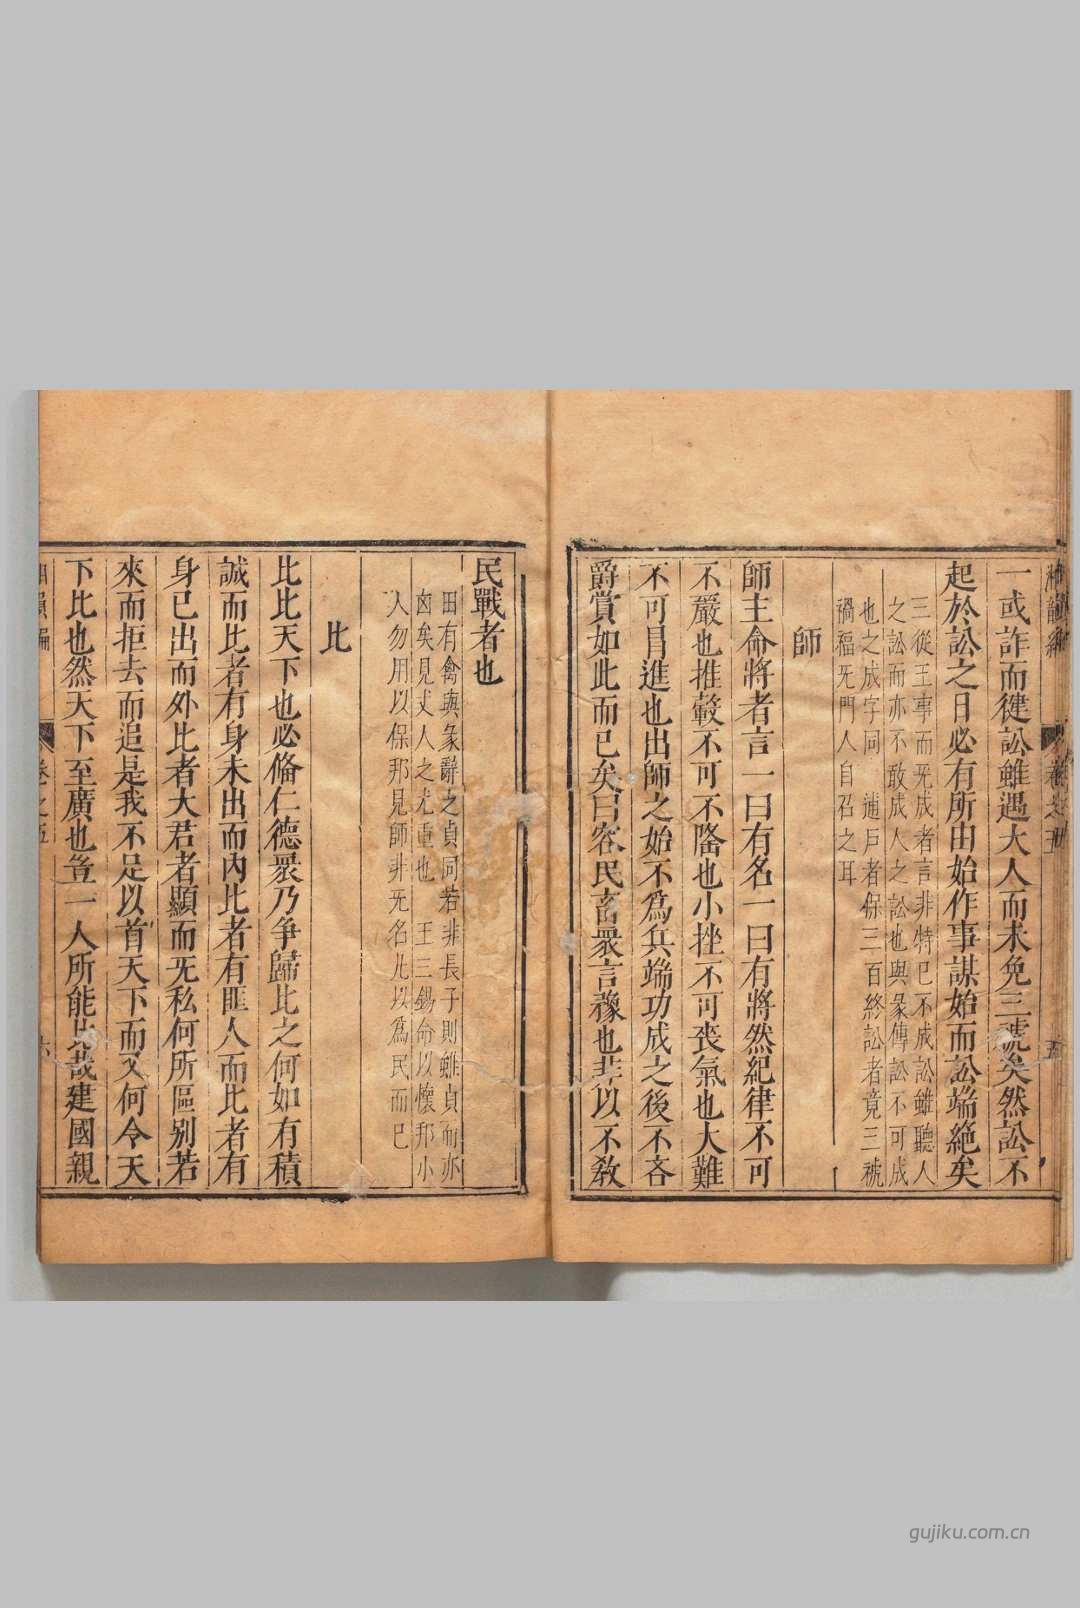 一或詐而健訟雖遇大人而未免三號矣然訟不
起於訟之日必有所由始作事謀始而訟端絕矣
三從王事而旡成者言非特已不成訟雖聽人
之訟而亦不敢成人之訟也與彖傳訟不可成
也之成字同 逋戶者保三百終訟者竟三褫
禍福旡門人自召之耳
師
師主命將者言一曰有名一曰有將然紀律不可
不嚴也推轂不可不隆也小挫不可喪氣也大難
不可冒進也出師之始不為兵端功成之後不吝
爵賞如此而已矣曰容民畜眾言豫也非以不教
民戰者也
田有禽與彖辭之貞同若非長子則雖貞而亦
凶矣見丈人之尤重也 王三錫命以懷邦小
人勿用以保邦見師非旡名凡以為民而已
比
比比天下也必脩仁德眾乃爭歸比之何如有積
誠而比者有身未出而內比者有匪人而比者有
身已出而外比者大君者顯而旡私何所區別若
來而拒去而追是我不足以首天下而又何令天
下比也然天下至廣也豈一人所能比哉建國親
卷之五
gujiku.com.cn